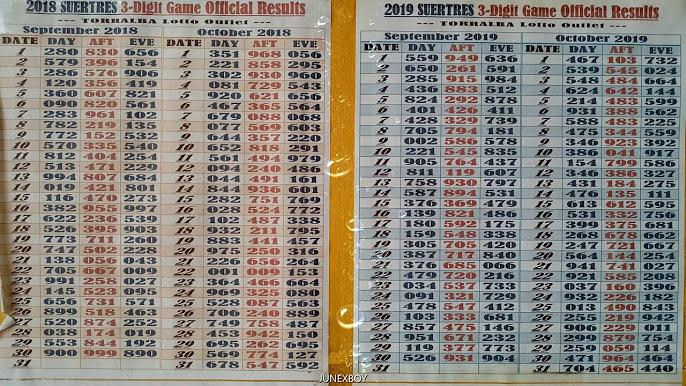 2018 SUERTRES 3-Digit Game Official Results
--- TORRALBA Lotto Outlet ---
September 2018 October 2018
DATE DAY AFT EVE DATE DAY AFT EVE
1 280 830 656 1 351 968 056
2 579 396 154 2 221 858 295
3 286 576 906 3 302 930 960
4 120 356 419 4 081 729 543
5 360 607 821 5 920 621 656
6 090 820 561 6 467 365 564
7 283 961 102 7 679 088 068
8 782 219 135 8 077 569 603
9 772 512 532 9 644 357 220
10 570 335 540 10 652 818 291
11 812 404 254 11 561 494 979
12 513 471 229 12 094 240 486
13 994 807 684 13 044 491 161
14 019 421 801 14 844 936 601
15 116 470 273 15 282 751 769
16 382 955 997 16 028 524 772
17 622 236 539 17 102 487 338
18 526 395 903 18 932 211 795
19 773 711 260 19 883 441 457
20 747 502 228 20 975 250 316
21 138 056 043 21 226 656 264
22 705 667 007 22 001 009 153
23 991 258 027 23 364 466 664
24 145 523 095 24 969 325 080
25 656 731 571 25 528 087 563
26 899 518 463 26 706 240 889
27 520 874 252 27 749 758 487
28 038 174 019 28 453 942 150
29 553 844 192 29 695 262 695
30 900 999 890 30 569 774 127
31 678 547 592
2019 SUERTRES 3-Digit Game Official Results
--- TORRALBA Lotto Outlet ---
September 2019 October 2019
DATE DAY AFT EVE DATE DAY AFT EVE
1 559 949 636 1 467 103 732
2 650 261 591 2 539 545 024
3 285 915 984 3 548 484 064
4 436 883 512 4 624 642 144
5 824 292 878 5 214 483 599
6 401 426 411 6 931 388 562
7 428 329 739 7 568 483 225
8 705 794 181 8 475 344 559
9 002 586 578 9 346 923 392
10 221 545 835 10 386 041 917
11 905 764 437 11 154 799 586
12 811 119 607 12 346 386 327
13 758 930 797 13 431 184 275
14 587 894 531 14 476 135 111
15 376 369 479 15 613 612 595
16 139 821 486 16 531 332 756
17 180 818 999 17 399 375 681
18 159 548 338 18 268 078 662
19 305 705 420 19 247 721 667
20 387 717 840 20 564 144 254
21 376 685 066 21 941 741 027
22 473 720 256 22 921 585 208
23 034 537 733 23 037 160 396
24 091 321 729 24 932 226 182
25 478 547 412 25 013 490 843
26 103 333 681 26 255 879 542
27 857 475 146 27 906 229 011
28 951 671 232 28 299 219 754
29 119 377 773 29 259 059 114
30 526 931 904 30 471 964 464
31 704 465 440
JUNEXBOY